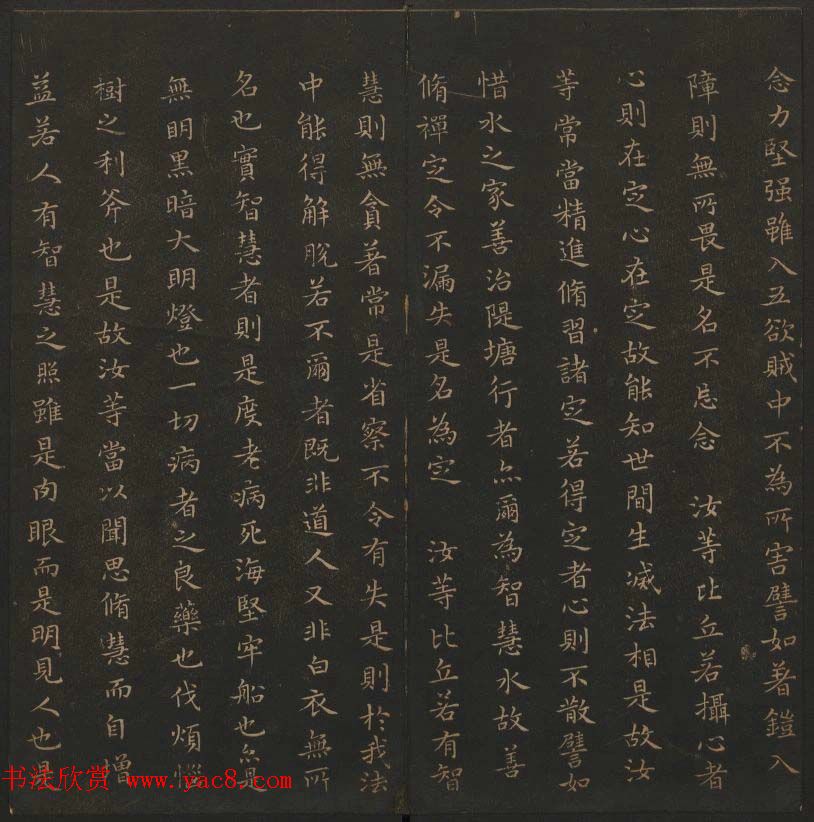 念力堅强雖入五欲賊中不為所害譬如著鎧入
障則無所畏是名不忘念　汝等比丘若攝心者
心則在定心在定故能知世間生滅法相是故汝
等常當精進脩習諸定若得定者心則不散譬如
惜水之家善治隄塘行者亦爾為智慧水故善
脩禪定令不漏失是名為定　汝等比丘若有智
慧則無貪著常是省察不令有失是則於我法
中能得解脫若不爾者既非道人又非白衣無所
名也實智慧者則是度老病死海堅牢船也亦是
無明黑暗大明燈也一切病者之良藥也伐煩惱
樹之利斧也是故汝等當以聞思脩慧而自增
益若人有智慧之照雖是肉眼而是明見人也是
书法欣赏 www.yac8.com